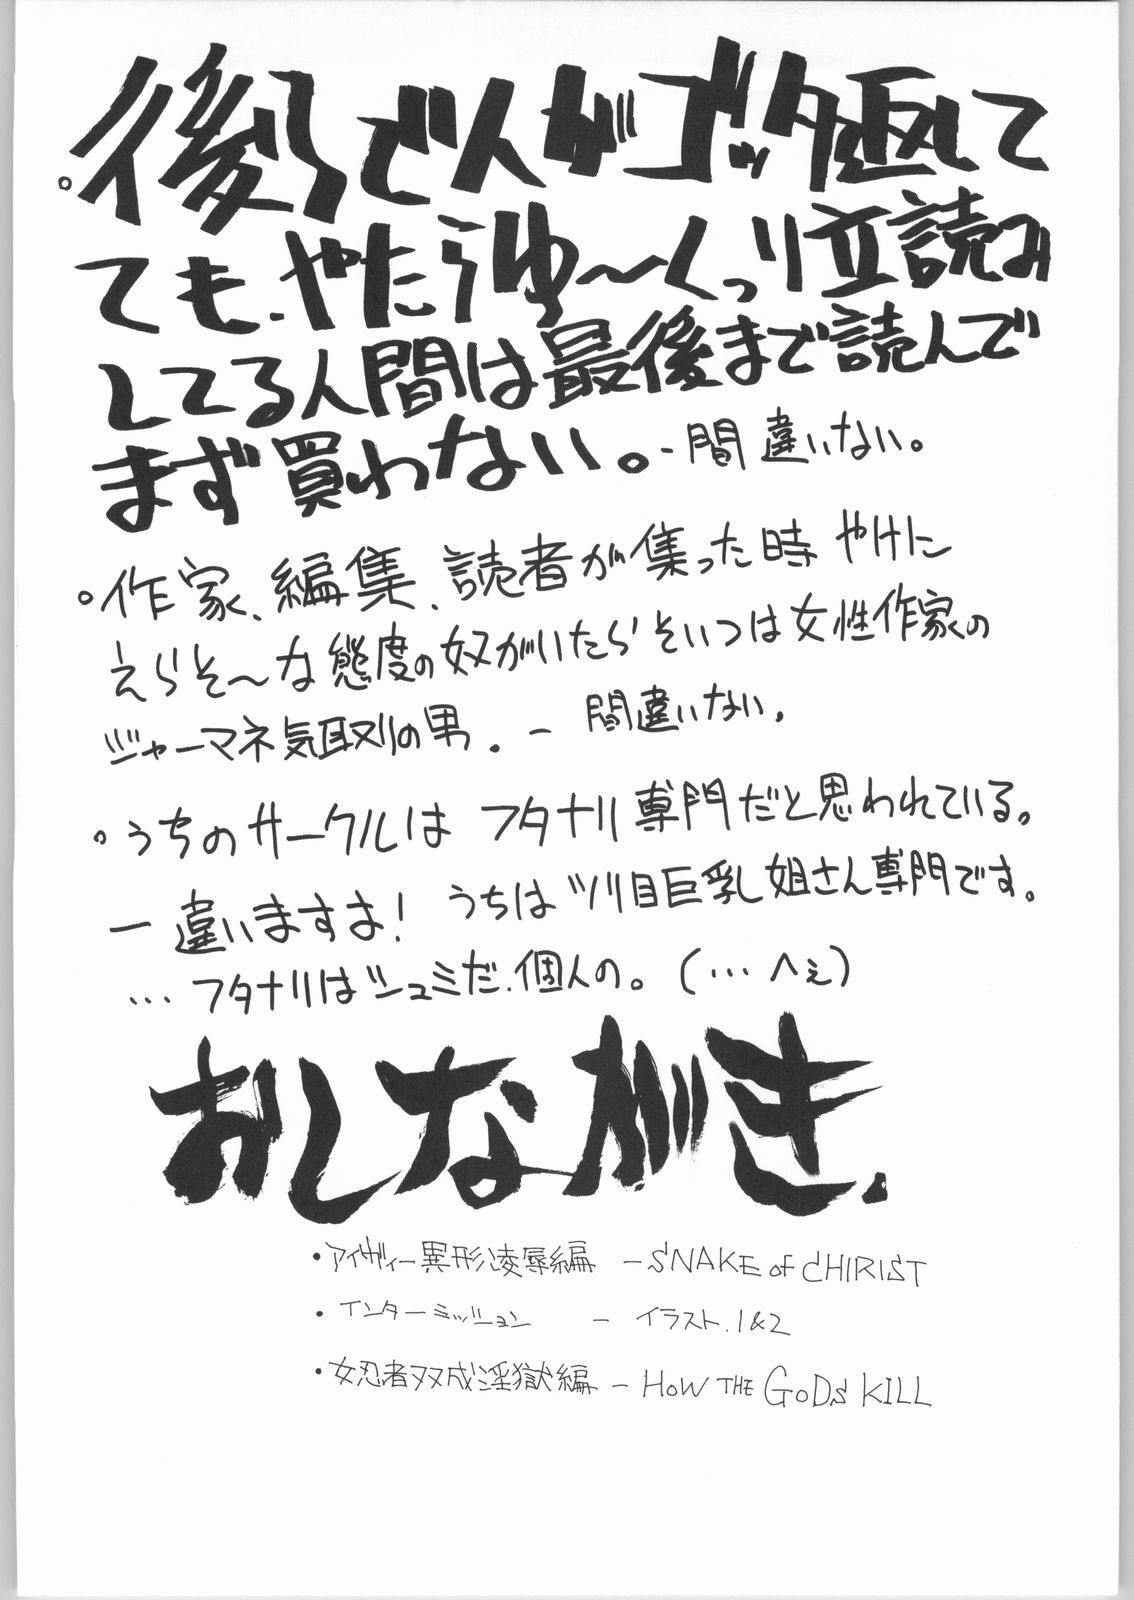 。後ろで人がゴッタ返して
ても、やたらゆ〜くっり立読み
してる人間は最後まで読んで
まず買わない。-間違いない。
。作家、編集、読者が集った時やけに
えらそ〜な態度の奴がいたらそいつは女性作家の
ジャーマネ気取りの男。- 間違いない。
。うちのサークルは フタナリ専門だと思われている。
ー 違いますよ! うちはツリ目巨乳姐さん専門です。
…フタナリはシュミだ、個人の。(…へぇ)
おしながき.
・アイヴィー異形凌辱編 -SNAKE of CHIRIST
・インターミッション - イラスト.1&2
・女忍者双成淫獄編 - HOW THE GODS KILL